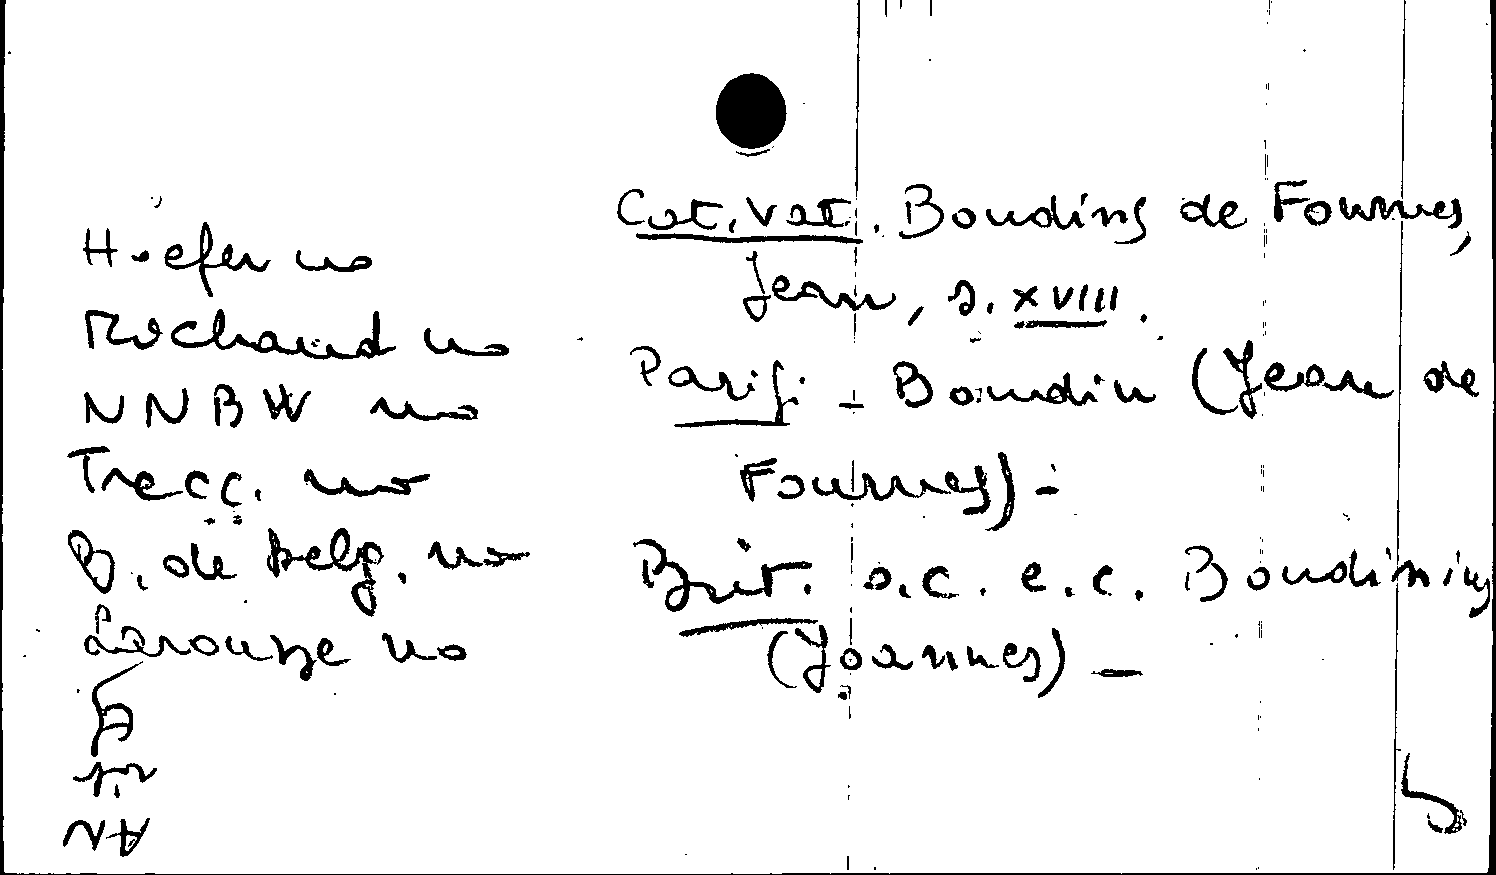 Cat. Vat. Boudins de Fournes,
Jean, s. XVIII.
Parigi - Boudin (Jean de
Fournes) -
Brit. s.c. e.c. Boudinius
(Joannes) -
Hoefer no
Michaud no
NNBW no
Trecc. no
B. de Belg. no
Larousse no